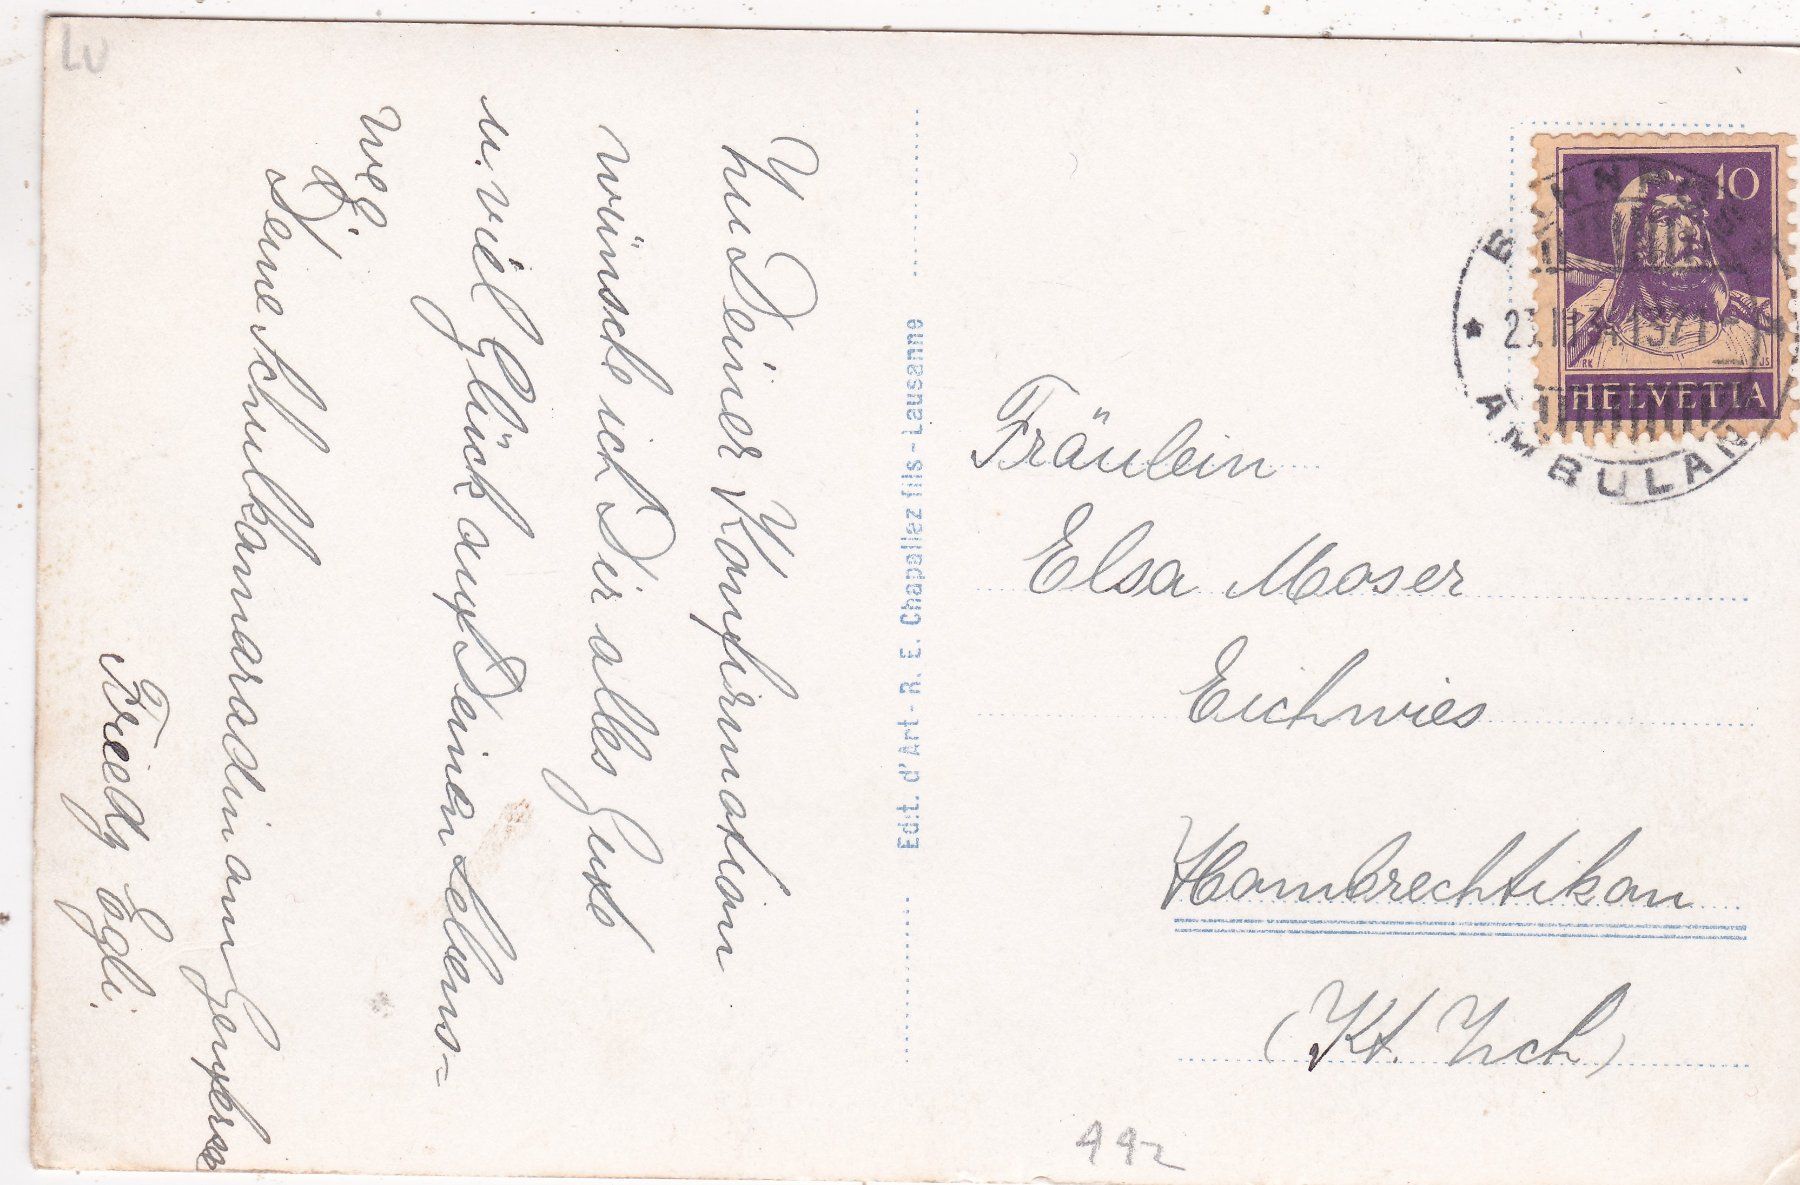 LU
Zu Deiner Konfirmation
wünsche ich Dir alles Gute
u. viel Glück auf Deinen Lebens=
weg.
Deine Schulkameradin am Genfersee
Friedy Egli.
Edit. d'Art - R. E. Chapallaz fils - Lausanne
10
HELVETIA
RK JS
AMBULANT
Fräulein
Elsa Moser
Eichwies
Hombrechtikon
(Kt. Zch)